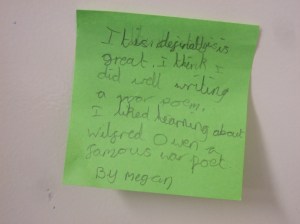 great. I think I
did well writing
a war poem.
I liked learning about
Wilfred Owen a
famous war poet
By Megan